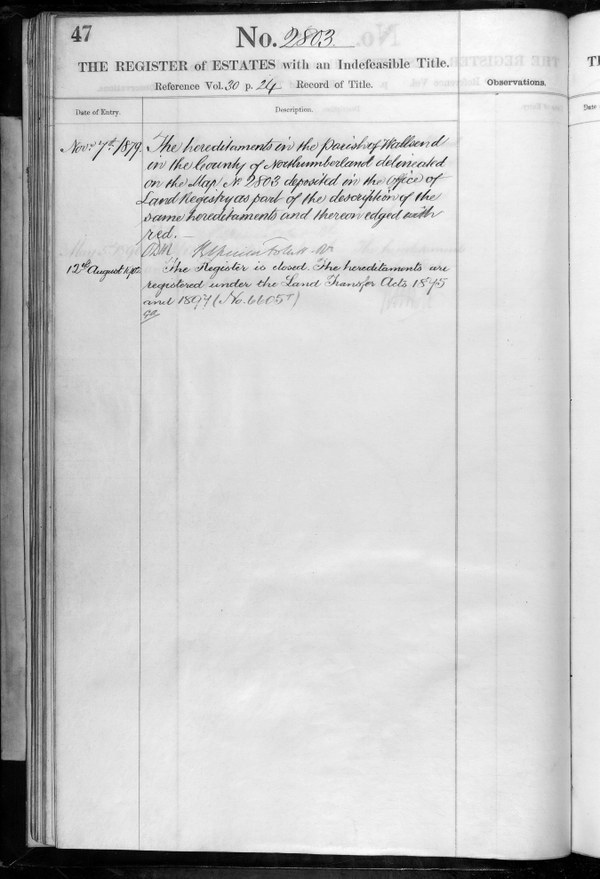 47
No. 2803
THE REGISTER of ESTATES with an Indefeasible Title.
Reference Vol. 30 p. 24 Record of Title.
Observations.
Date of Entry.
Description.
Nov.r 7th 1879
The hereditaments in the Parish of Wallsend
in the County of Northumberland delineated
on the Map No 2803 deposited in the Office of
Land Registry as part of the description of the
same hereditaments and thereon edged with
red. —
12th August
The Register is closed. The hereditaments are
registered under the Land Transfer Acts 1875
and 1897 (No. 6605)